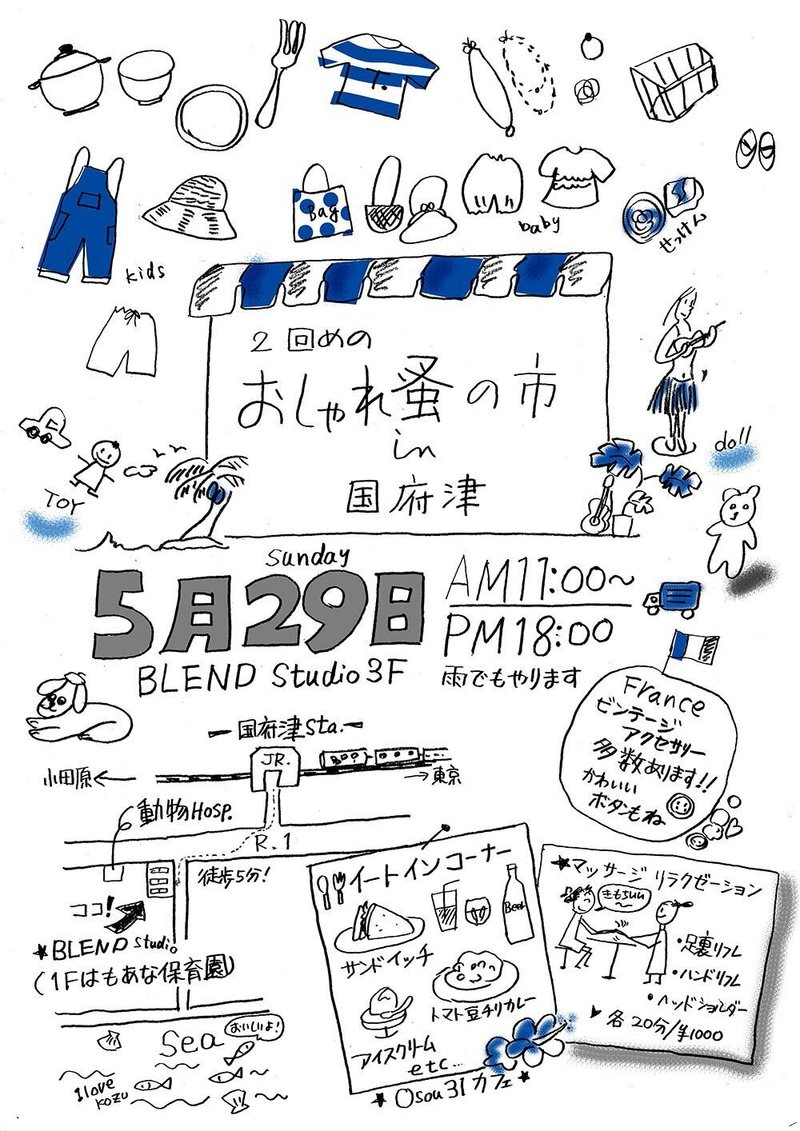 Bag
baby
せっけん
kids
2回めの
おしゃれ蚤の市
in
国府津
TOY
doll
Sunday
5月29日
AM11:00~
PM18:00
BLEND Studio 3F
雨でもやります
France
ビンテージ
アクセサリー
多数あります!!
かわいい
ボタンもね
国府津Sta.
JR.
小田原←
→東京
動物HOSP.
R.1
徒歩5分!
ココ!
★BLEND Studio
(1Fはもあな保育園)
Sea
おいしいよ!
I love
KOZU
イートインコーナー
Beer
サンドイッチ
トマト豆チリカレー
アイスクリーム
etc...
★Osou31カフェ★
★マッサージ リラクゼーション
きもちいい
・足裏リフレ
・ハンドリフレ
・ヘッドショルダー
各20分/¥1000